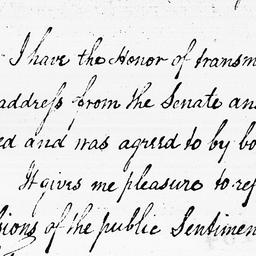 I have the Honor of transm
address from the Senate an
ed and was agreed to by bo
It gives me pleasure to ref
sions of the public Sentimen